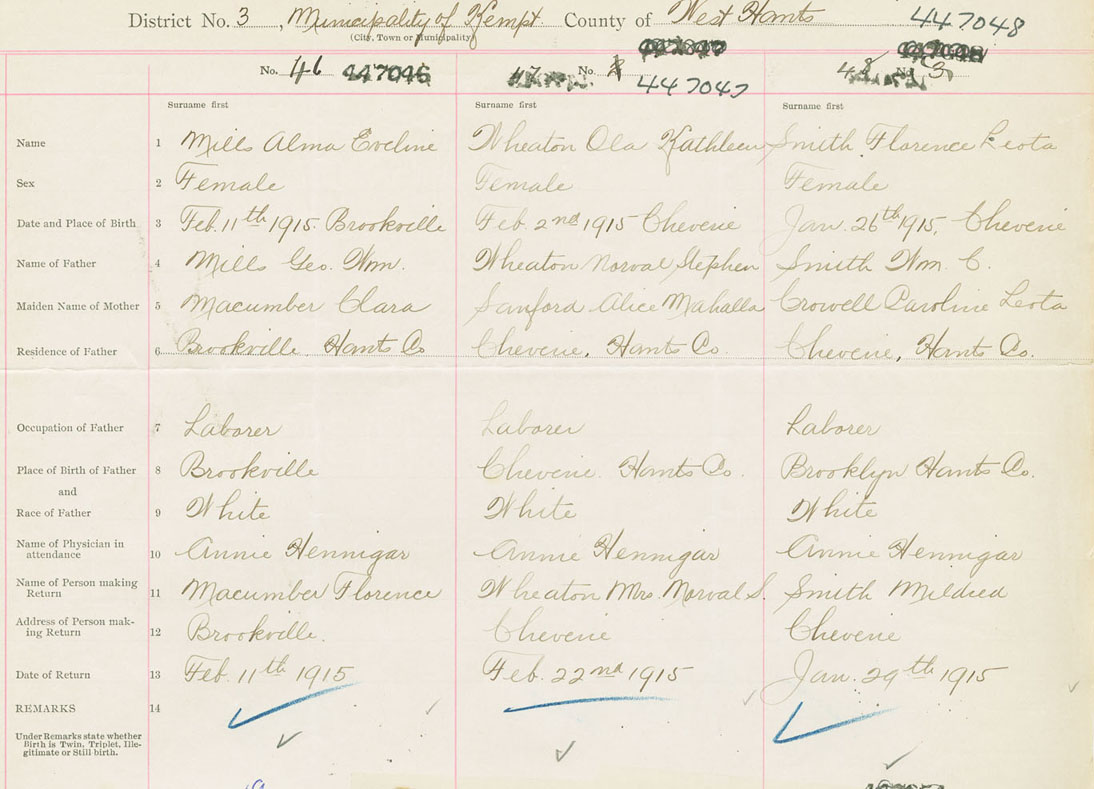 District No. 3, Municipality of Kempt County of West Hants 447048
(City, Town or Municipality)
No. 46 447046 47 No. 447047 48 No. 3
Surname first Surname first Surname first
Name 1 Mills Alma Eveline Wheaton Ola Kathleen Smith Florence Leota
Sex 2 Female Female Female
Date and Place of Birth 3 Feb. 11th 1915. Brookville Feb. 2nd 1915 Cheverie Jan. 26th 1915, Cheverie
Name of Father 4 Mills Geo. Wm. Wheaton Norval Stephen Smith Wm. C.
Maiden Name of Mother 5 Macumber Clara Sanford Alice Mahalla Crowell Caroline Leota
Residence of Father 6 Brookville Hants Co Cheverie, Hants Co. Cheverie, Hants Co.
Occupation of Father 7 Laborer Laborer Laborer
Place of Birth of Father 8 Brookville Cheverie. Hants Co. Brooklyn Hants Co.
and
Race of Father 9 White White White
Name of Physician in
attendance 10 Annie Hennigar Annie Hennigar Annie Hennigar
Name of Person making
Return 11 Macumber Florence Wheaton Mrs. Norval S. Smith Mildred
Address of Person mak-
ing Return 12 Brookville. Cheverie Cheverie
Date of Return 13 Feb. 11th 1915 Feb. 22nd 1915 Jan. 29th 1915
REMARKS 14
Under Remarks state whether
Birth is Twin, Triplet, Ille-
gitimate or Still birth.